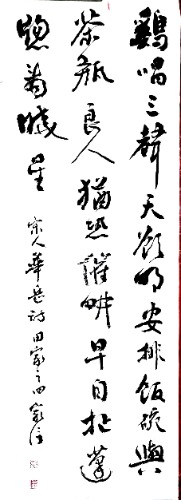 鷄唱三聲天欲明安排飯碗與
茶瓶良人猶恐催畊早自扯蓬
窻看曉星
宋人華岳詩田家之四